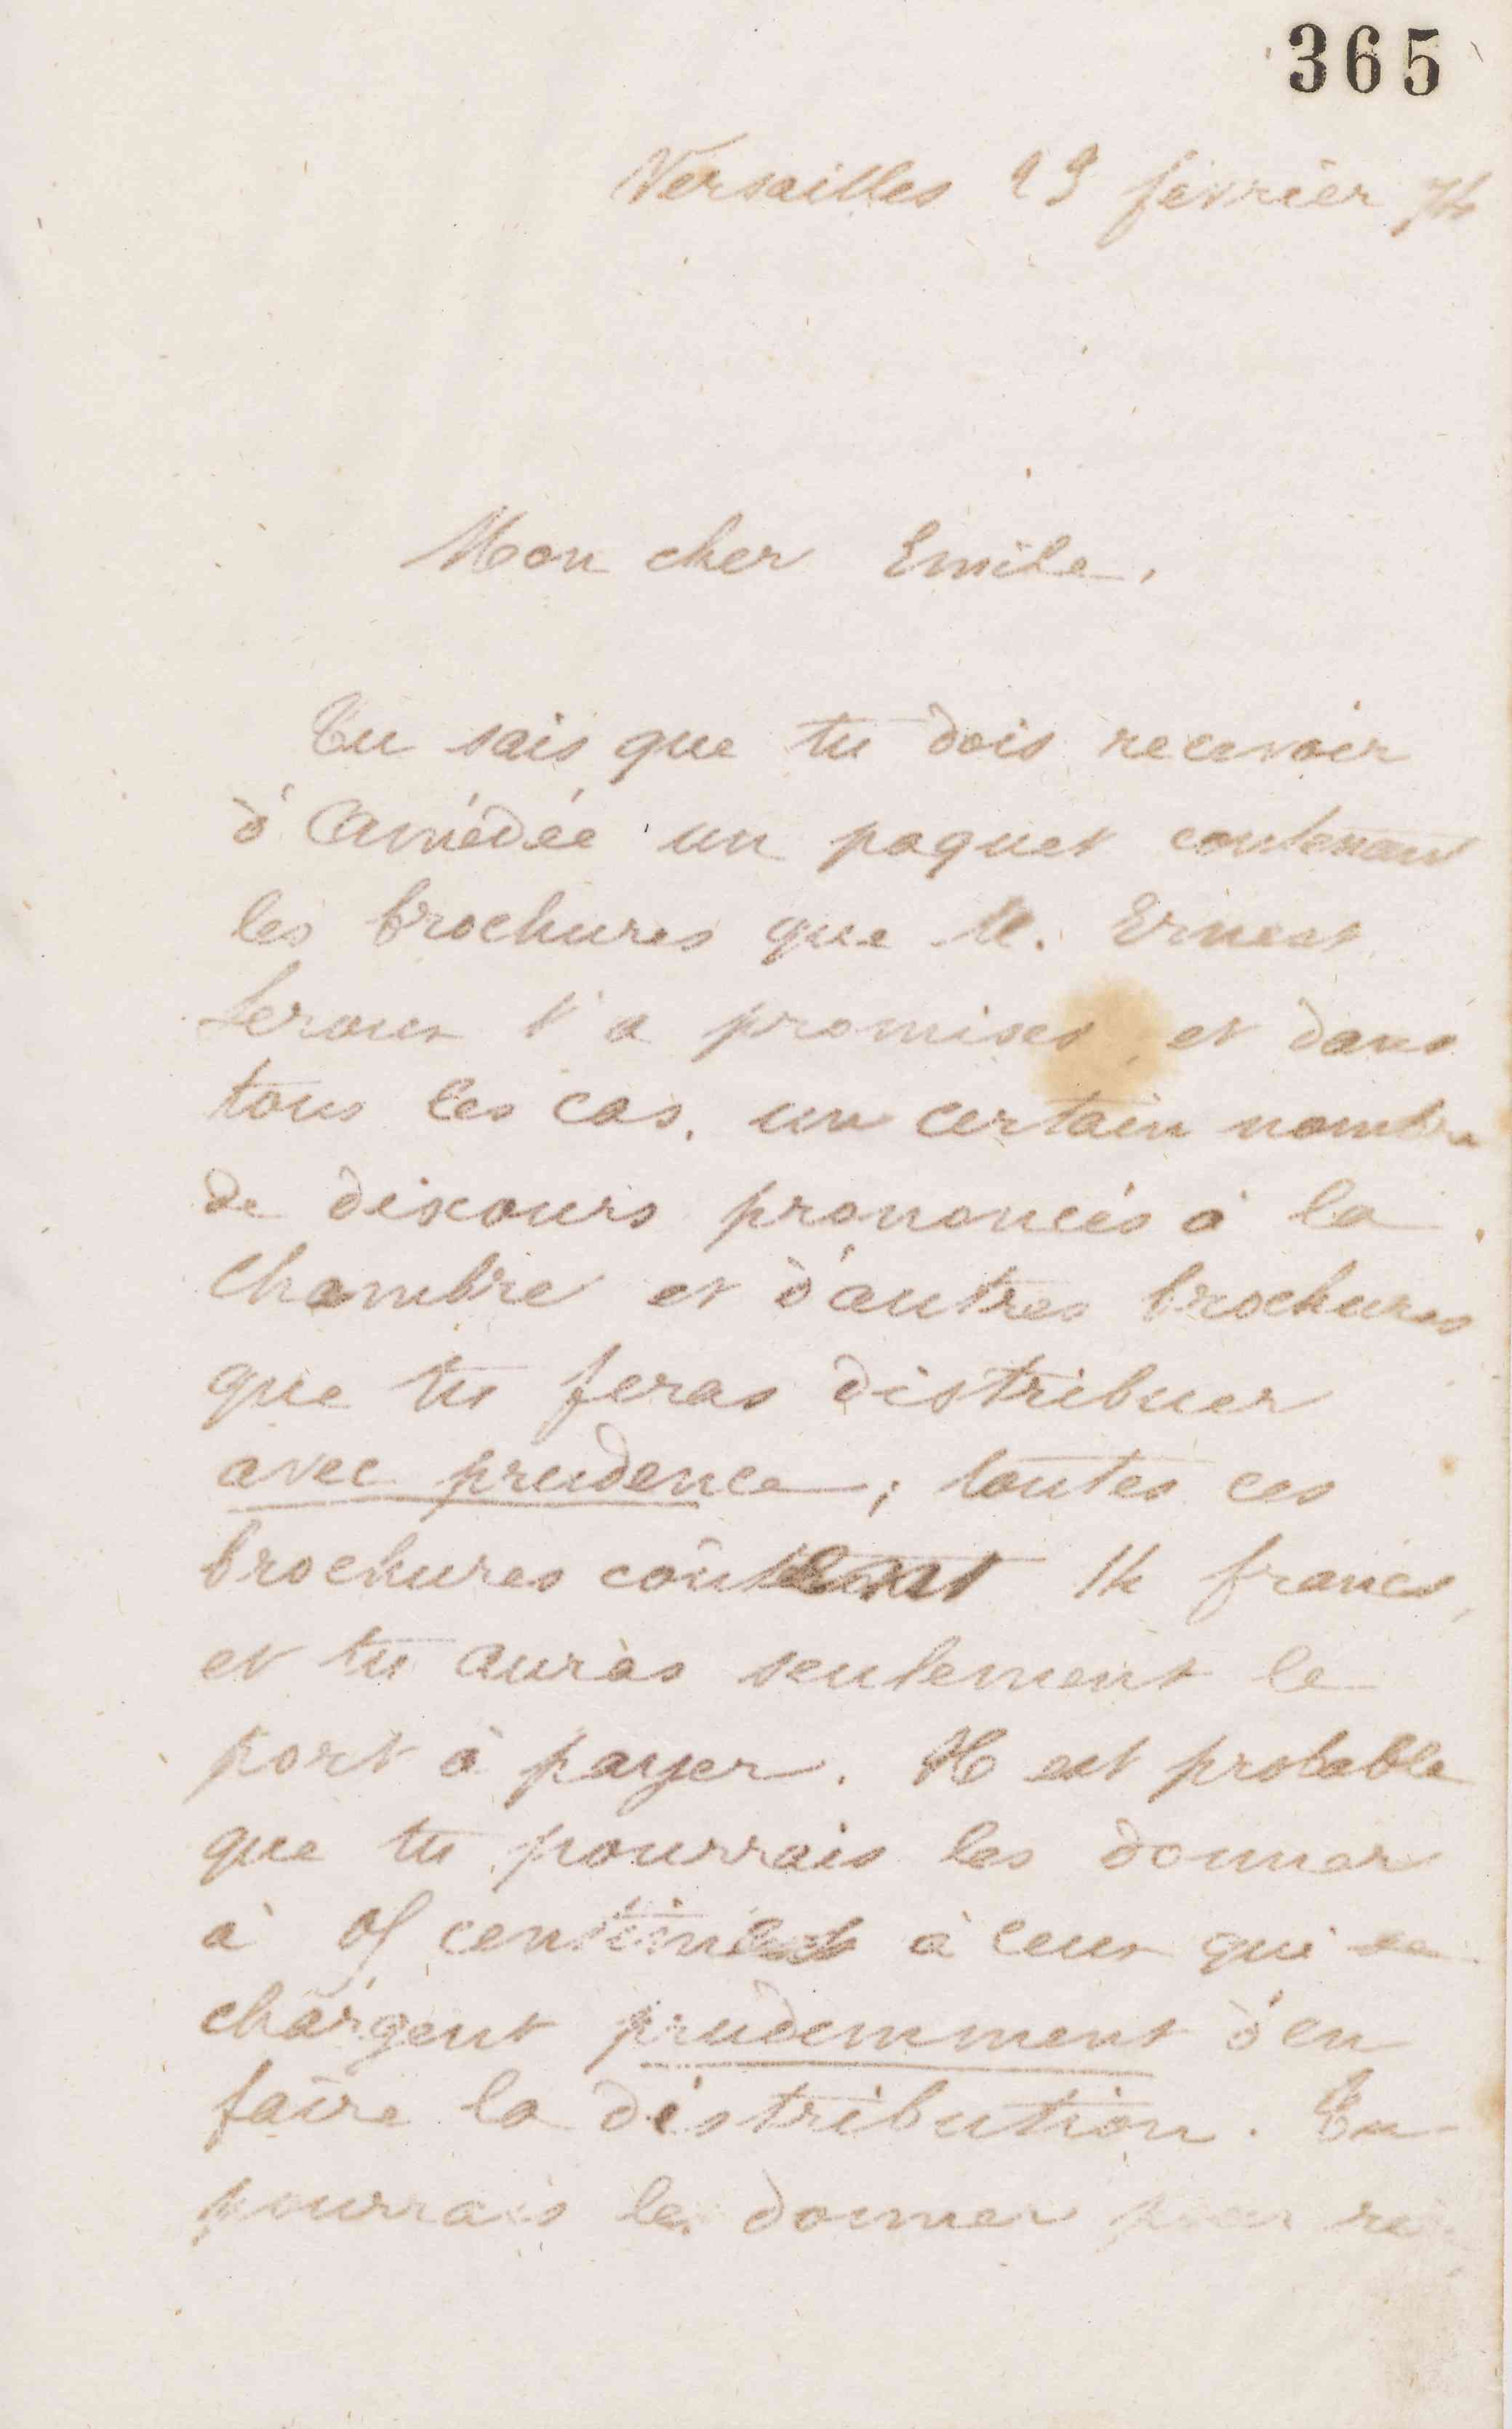 365
Versailles 23 février 74
Mon cher Emile,
Tu sais que tu dois recevoir
d'Amédée un paquet contenant
les brochures que M. Ernest
Leroux t'a promises, et dans
tous les cas, un certain nombre
de discours prononcés à la
chambre et d'autres brochures
que tu feras distribuer
avec prudence ; toutes ces
brochures coûtent 14 francs,
et tu auras seulement le
port à payer. Il est probable
que tu pourrais les donner
à centimes à ceux qui se
chargent prudemment d'en
faire la distribution. Tu
pourrais les donner pour